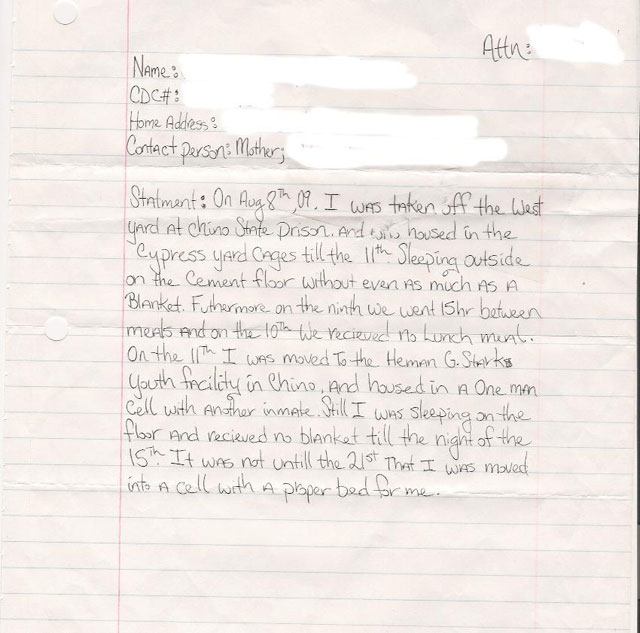 Attn:
Name:
CDC#:
Home Address:
Contact person: Mother;
Statment: On Aug 8th, 09. I was taken off the West
yard at Chino State Prison. And was housed in the
Cypress yard Cages till the 11th. Sleeping outside
on the Cement floor without even as much as a
Blanket. Futhermore on the ninth we went 15hr between
meals and on the 10th We recieved no Lunch meal.
On the 11th I was moved To the Heman G. Starks
Youth facility in Chino, And housed in a One man
Cell with another inmate. Still I was sleeping on the
floor and recieved no blanket till the night of the
15th. It was not untill the 21st That I was moved
into a cell with a proper bed for me.